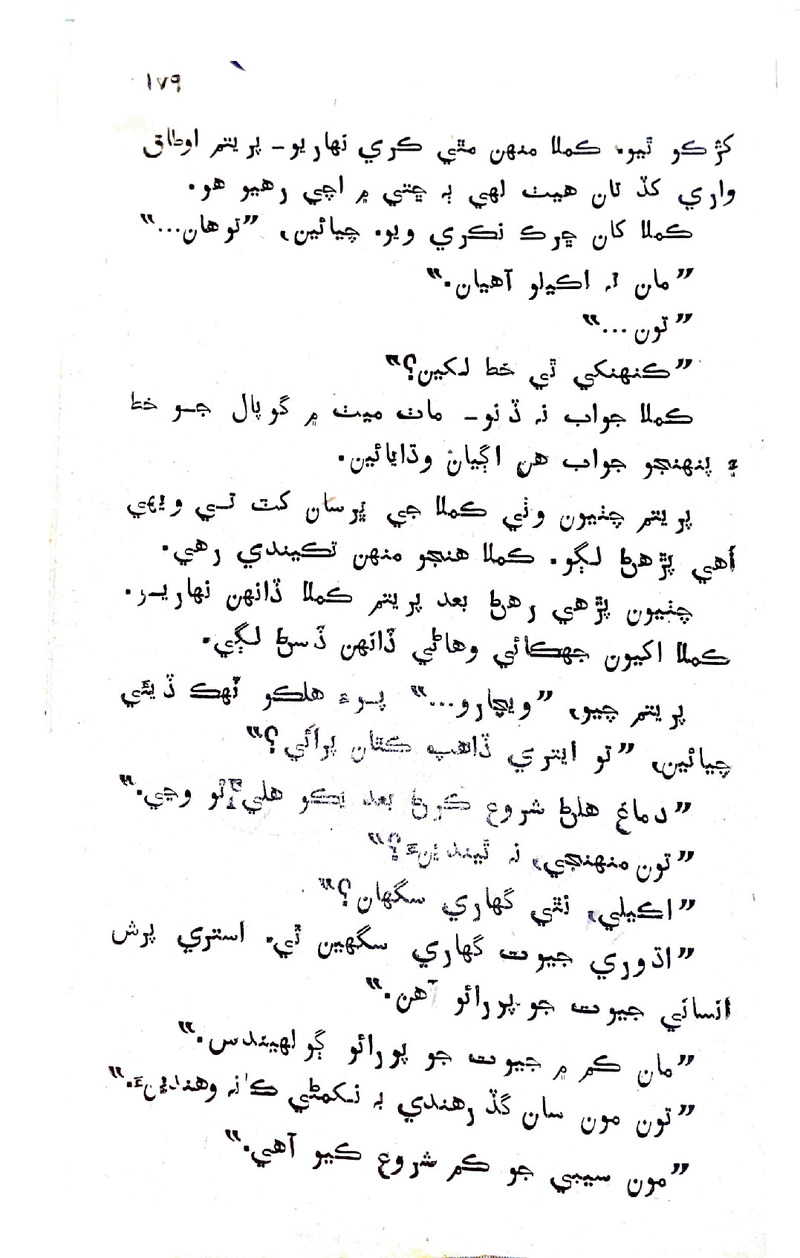 ۱۷۹
کڙڪو ٿيو. ڪملا منهن مٿي ڪري نهاريو- پريتم اوطاق
واري کڏ تان هيٺ لهي ٻه ڇتي ۾ اچي رهيو هو.
ڪملا کان ڇرڪ نڪري ويو. چيائين، ”توهان...“
”مان ته اڪيلو آهيان.“
”تون...“
”ڪنهنکي ٿي خط لکين؟“
ڪملا جواب نہ ڏنو- ماٺ ميٺ ۾ گوپال جو خط
۽ پنهنجو جواب هن اڳيان وڌايائين.
پريتم چٺيون وٺي ڪملا جي ڀرسان کٽ تي ويهي
اُهي پڙهڻ لڳو. ڪملا هنجو منهن تڪيندي رهي.
چٺيون پڙهي رهڻ بعد پريتم ڪملا ڏانهن نهاريو.
ڪملا اکيون جهڪائي وهاڻي ڏانهن ڏسڻ لڳي.
پريتم چيو، ”ويچارو...“ پوءِ هلڪو ٽهڪ ڏيئي
چيائين، ”تو ايتري ڏاهپ ڪٿان پرائي؟“
”دماغ هلڻ شروع ڪرڻ بعد هلي ئو وڃي.“
”تون منهنجي، نہ ٿيندينءَ؟“
”اڪيلي، نٿي گهاري سگهان؟“
”اڌوري جيوت گهاري سگهين ٿي. استري پرش
انساني جيوت جو پورائو آهن.“
”مان ڪم ۾ جيوت جو پورائو ڳولهيندس.“
”تون مون سان گڏ رهندي بہ نڪمڻي ڪانہ وهندينءَ.“
”مون سيبي جو ڪم شروع ڪيو آهي.“